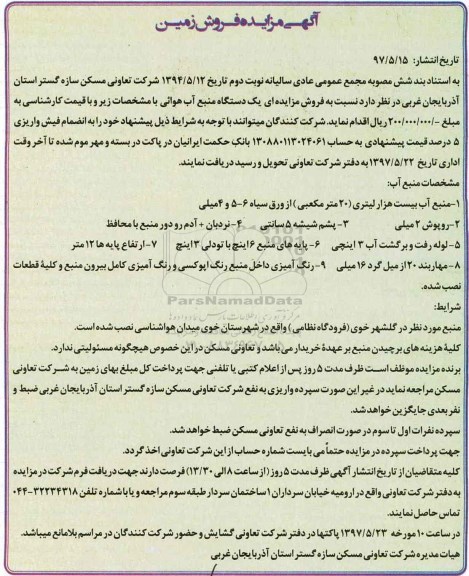 آگهی مزایده فروش زمین
تاریخ انتشار: ۹۷/۵/۱۵
به استناد بند شش مصوبه مجمع عمومی عادی سالیانه نوبت دوم تاریخ ۱۳۹۴/۵/۱۲ شرکت تعاونی مسکن سازه گستر استان
آذربایجان غربی در نظر دارد نسبت به فروش مزایده ای یک دستگاه منبع آب هوائی با مشخصات زیر و با قیمت کارشناسی به
مبلغ -/۲۰۰/۰۰۰/۰۰۰ ریال اقدام نماید. شرکت کنندگان میتوانند با توجه به شرایط ذیل پیشنهاد خود را به انضمام فیش واریزی
۵ درصد قیمت پیشنهادی به حساب ۱۳۰۸۸۰۱۱۳۰۲۴۰۶۱ بانک حکمت ایرانیان در پاکت در بسته و مهر موم شده تا آخر وقت
اداری تاریخ ۱۳۹۷/۵/۲۲ به دفتر شرکت تعاونی تحویل و رسید دریافت نمایند.
مشخصات منبع آب:
۱-منبع آب بیست هزار لیتری (۲۰ متر مکعبی) از ورق سیاه ۶-۵ و ۴میلی
۲-روپوش ۲ میلی ۳- پشم شیشه ۵ سانتی ۴- نردبان + آدم رو دور منبع با محافظ
۵- لوله رفت و برگشت آب ۳ اینچی ۶- پایه های منبع ۶ اینچ با تودلی ۳ اینچ ۷-ارتفاع پایه ها ۱۲ متر
۸- مهاربند ۲۰ از میل گرد ۱۶ میلی ۹-رنگ آمیزی داخل منبع رنگ اپوکسی و رنگ آمیزی کامل بیرون منبع و کلیۀ قطعات
نصب شده.
شرایط:
منبع مورد نظر در گلشهر خوی (فرودگاه نظامی) واقع در شهرستان خوی میدان هواشناسی نصب شده است.
کلیۀ هزینه های برچیدن منبع بر عهدۀ خریدار می باشد و تعاونی مسکن در این خصوص هیچگونه مسئولیتی ندارد.
برنده مزایده موظف است ظرف مدت ۵ روز پس از اعلام کتبی یا تلفنی جهت پرداخت کل مبلغ بهای زمین به شرکت تعاونی
مسکن مراجعه نماید در غیر این صورت سپرده واریزی به نفع شرکت تعاونی مسکن سازه گستر استان آذربایجان غربی ضبط و
نفر بعدی جایگزین خواهد شد.
سپرده نفرات اول تا سوم در صورت انصراف به نفع تعاونی مسکن ضبط خواهد شد.
جهت پرداخت سپرده در مزایده حتماً می بایست شماره حساب از این شرکت تعاونی اخذ گردد.
کلیه متقاضیان از تاریخ انتشار آگهی ظرف مدت ۵ روز (از ساعت ۸ الی ۱۳/۳۰) فرصت دارند جهت دریافت فرم شرکت در مزایده
به دفتر شرکت تعاونی واقع در ارومیه خیابان سرداران ۱ ساختمان سردار طبقه سوم مراجعه و یا با شماره تلفن ۳۲۲۳۴۳۱۸-۰۴۴
تماس حاصل نمایند.
در ساعت ۱۰ مورخه ۱۳۹۷/۵/۲۳ پاکتها در دفتر شرکت تعاونی گشایش و حضور شرکت کنندگان در مراسم بلامانع میباشد.
هیات مدیره شرکت تعاونی مسکن سازه گستر استان آذربایجان غربی
ParsNamadData